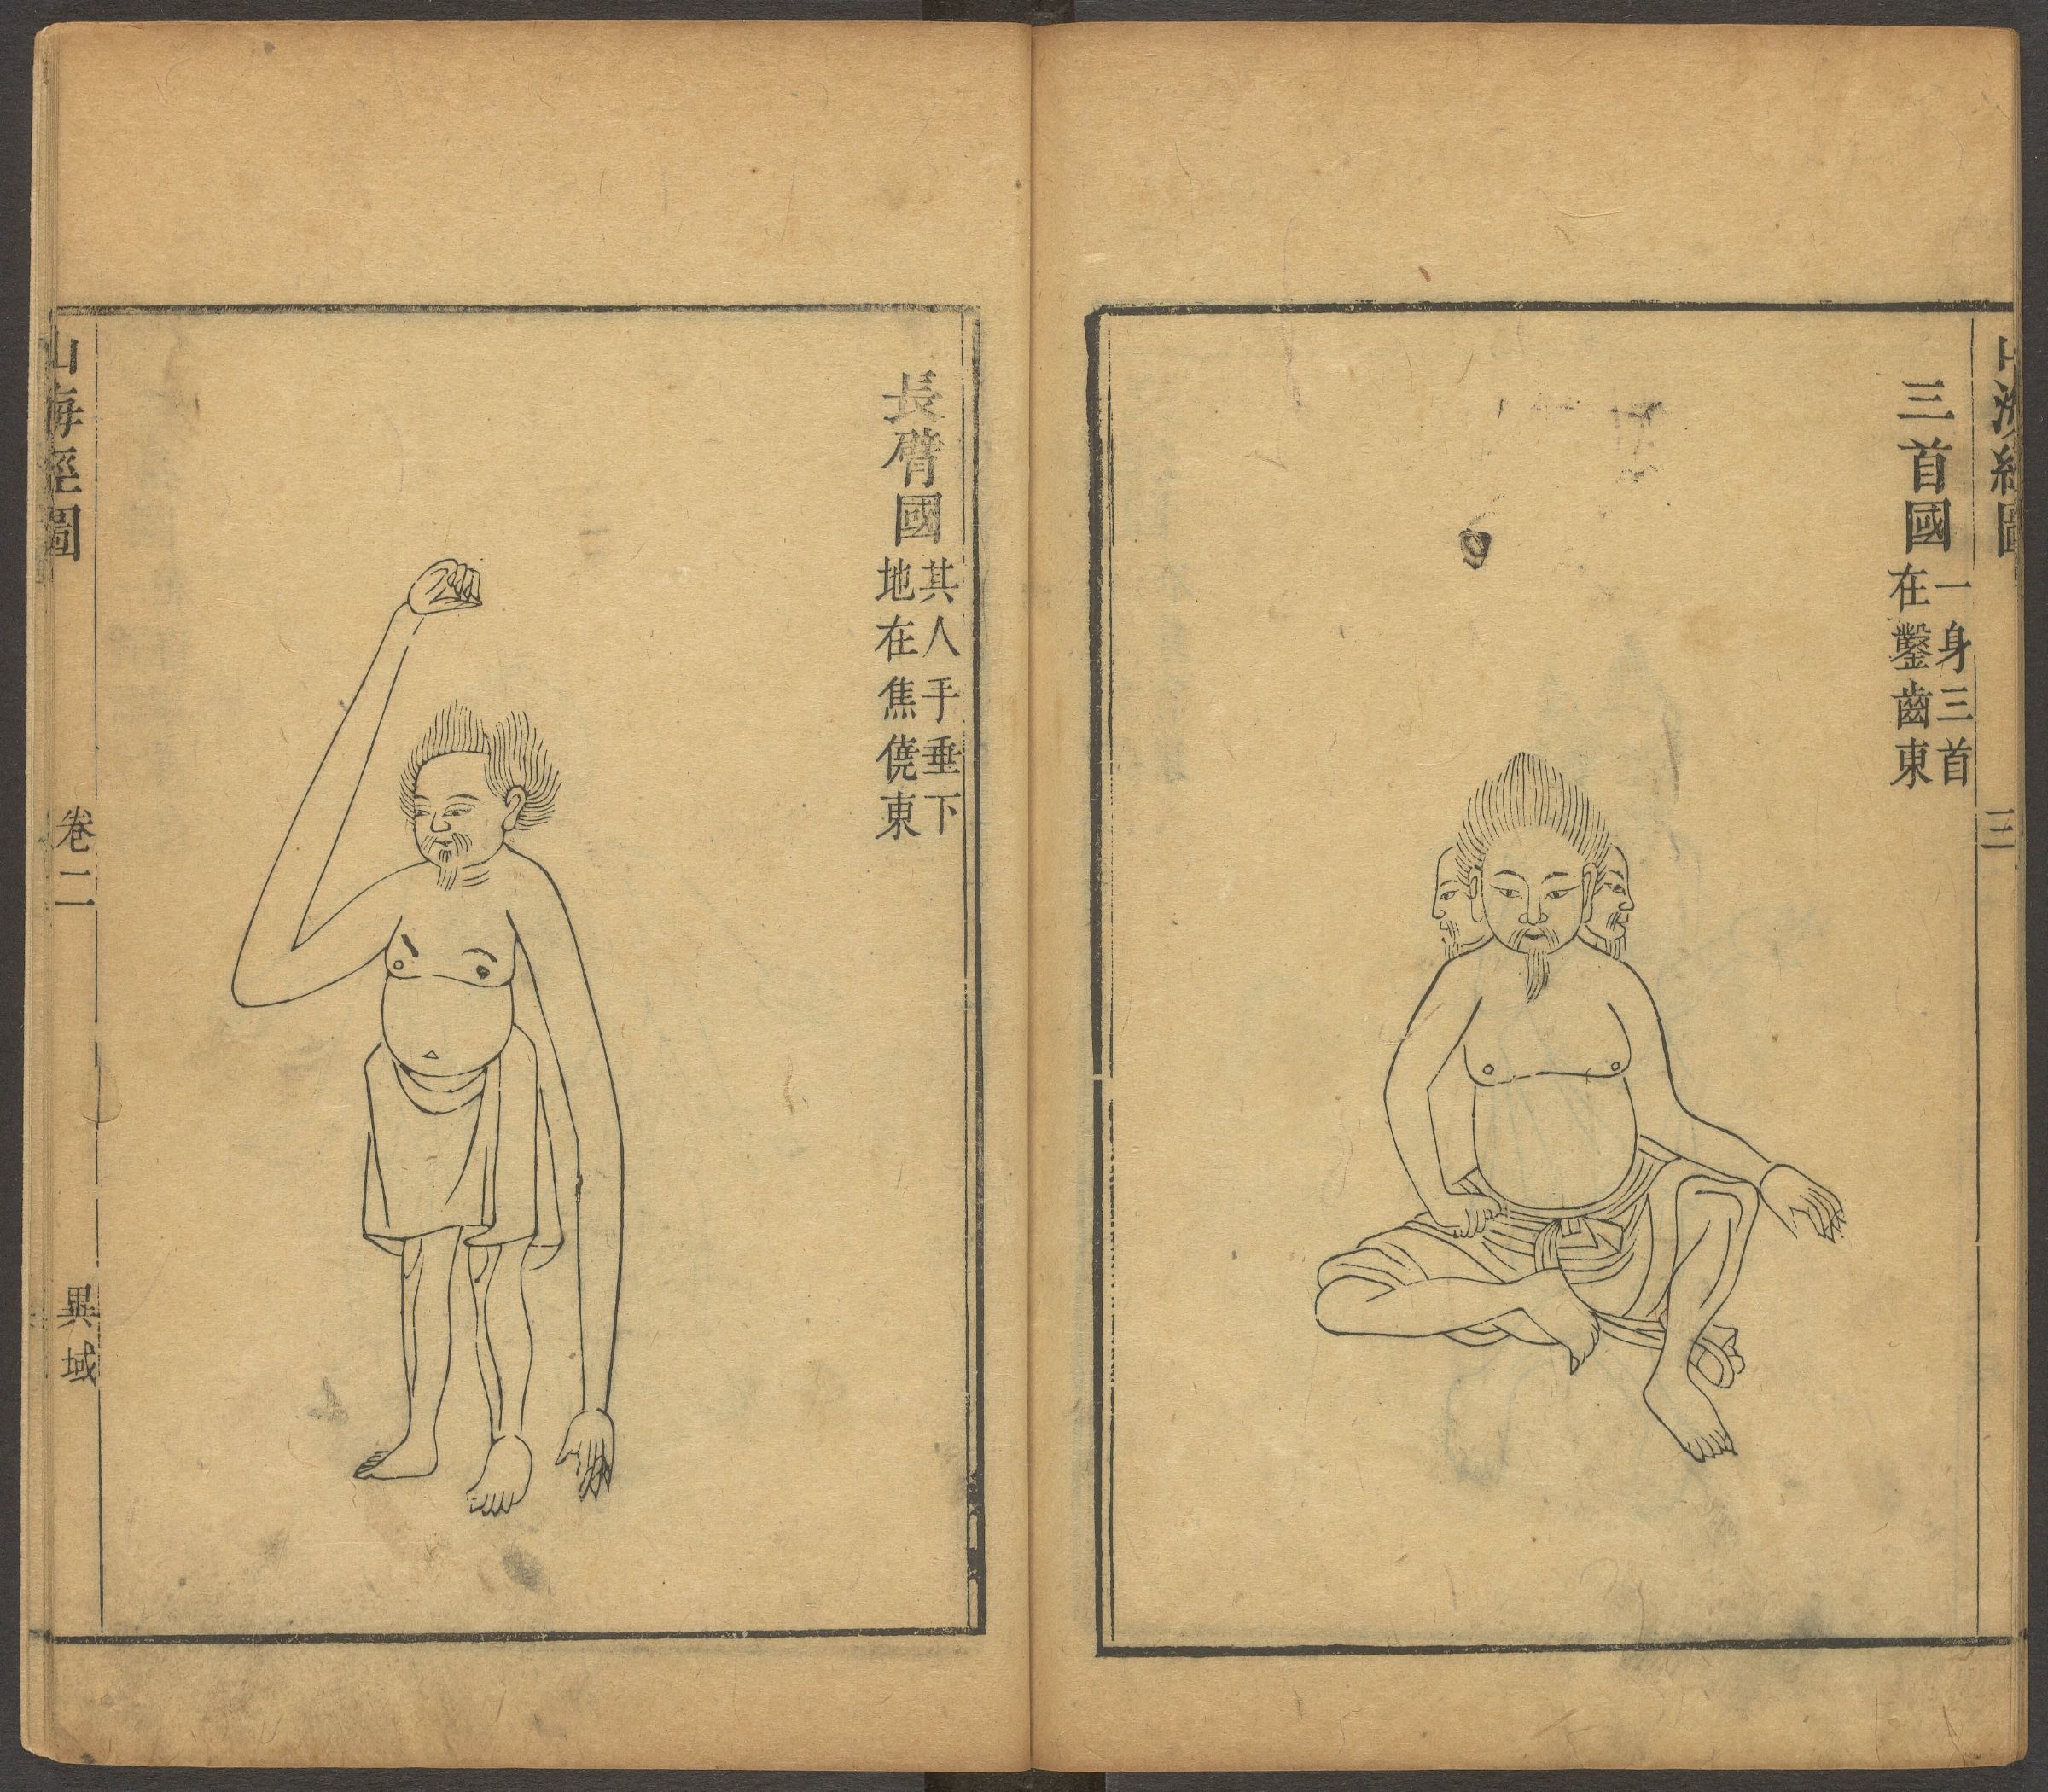 山海經圖
三
三首國
一身三首
在鑿齒東
長臂國
其人手垂下
地在焦僥東
山海經圖
卷二
異域